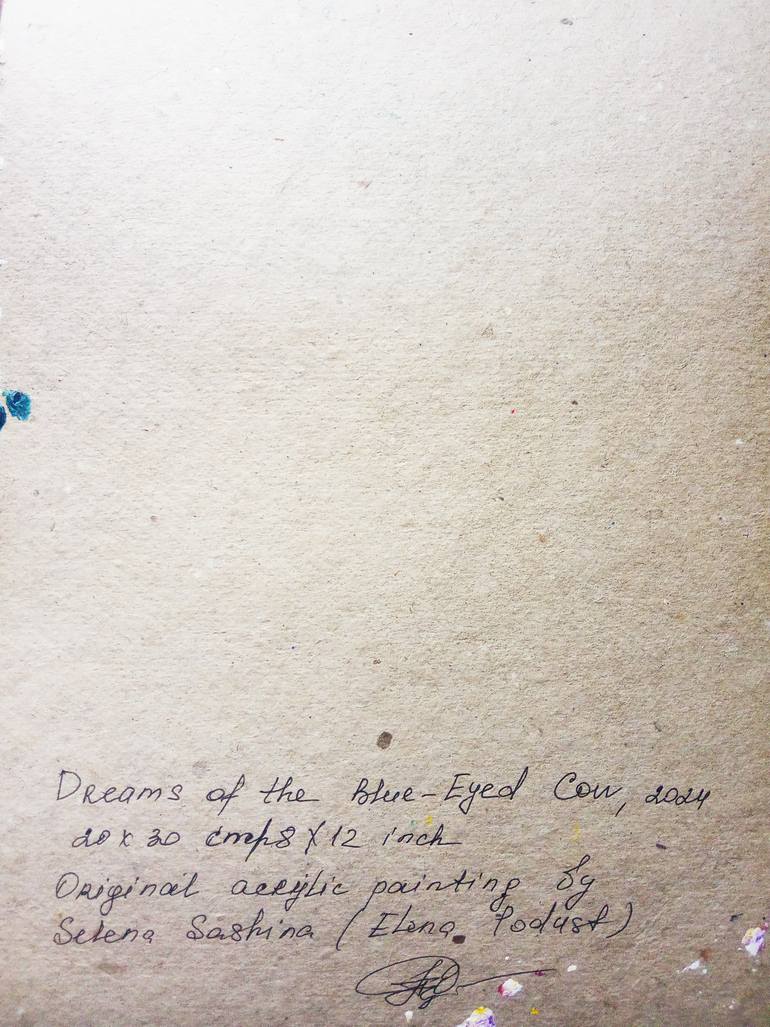 Dreams of the Blue-Eyed Cow, 2024
20 x 30 cm, 8 X 12 inch
Original acrylic painting by
Selena Sashina (Elena Podust)